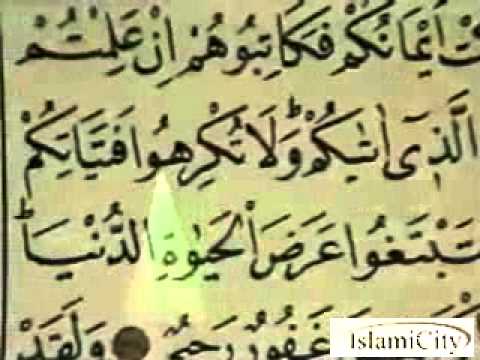 أَيْمَانُكُمْ فَكَاتِبُوهُمْ إِنْ عَلِمْتُمْ
الَّذِىٓ اٰتٰىكُمْ ۚ وَلَا تُكْرِهُوا فَتَيَاتِكُمْ
تَبْتَغُوا عَرَضَ الْحَيٰوةِ الدُّنْيَا ۚ
غَفُورٌ رَحِيمٌ وَلَقَدْ
IslamiCity